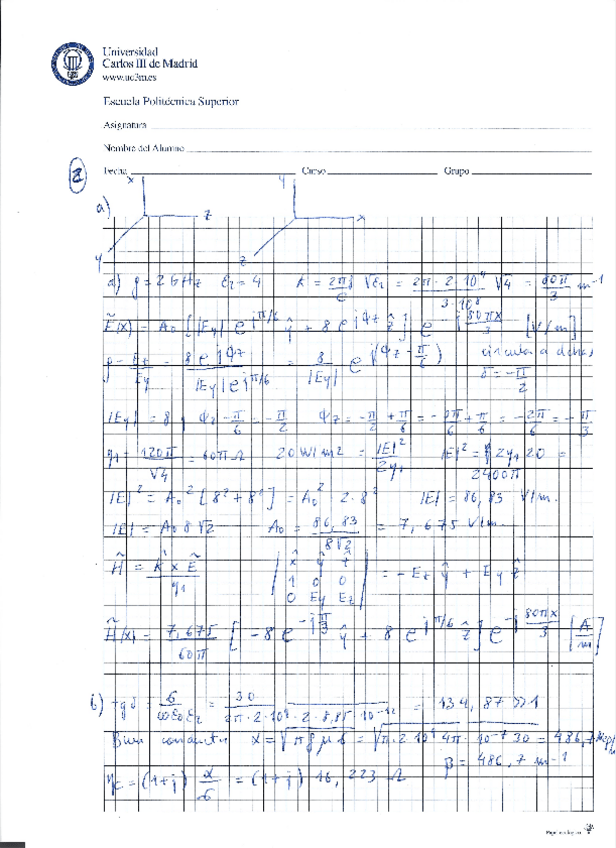 Universidad
Carlos III de Madrid
www.uc3m.es
Escuela Politécnica Superior
Asignatura
Nombre del Alumno
Fecha Curso Grupo
2
a) x z y y x z
a) f = 2 GHz ε₂ = 4 K = 2πf/c √ε₂ = 2π·2·10⁹/3·10⁸ √4 = 80π/3 m⁻¹
Ẽ(x) = A₀ [|Ey| e^{jπ/6} ŷ + 8 e^{jφz} ẑ] e^{-j 80πx/3} [V/m]
p = Ez/Ey = 8 e^{jφz}/|Ey| e^{jπ/6} = 8/|Ey| e^{j(φz - π/6)} circular a dchas δ = -π/2
|Ey| = 8 y φz - π/6 = -π/2 φz = -π/2 + π/6 = -3π/6 + π/6 = -2π/6 = -π/3
η₁ = 120π/√4 = 60π Ω 20 W/m² = |E|²/2η₁ |E|² = 2η₁ 20 = 2400π
|E|² = A₀² [8² + 8²] = A₀² 2·8² |E| = 86,83 V/m.
|E| = A₀ 8√2 A₀ = 86,83/8√2 = 7,675 V/m.
H̃ = K̂ x Ẽ/η₁ | x̂ ŷ ẑ | 1 0 0 | 0 Ey Ez | = -Ez ŷ + Ey ẑ
H̃(x) = 7,675/60π [-8 e^{-jπ/3} ŷ + 8 e^{jπ/6} ẑ] e^{-j 80πx/3} [A/m]
b) tg δ = σ/ωε₀ε₂ = 30/2π·2·10⁹·2·8,85·10⁻¹² = 134,87 >>1
Buen conductor α = √πfμσ = √π·2·10⁹ 4π·10⁻⁷ 30 = 486,7 Nep/m
β = 486,7 m⁻¹
ηc = (1+j) α/σ = (1+j) 16,223 Ω